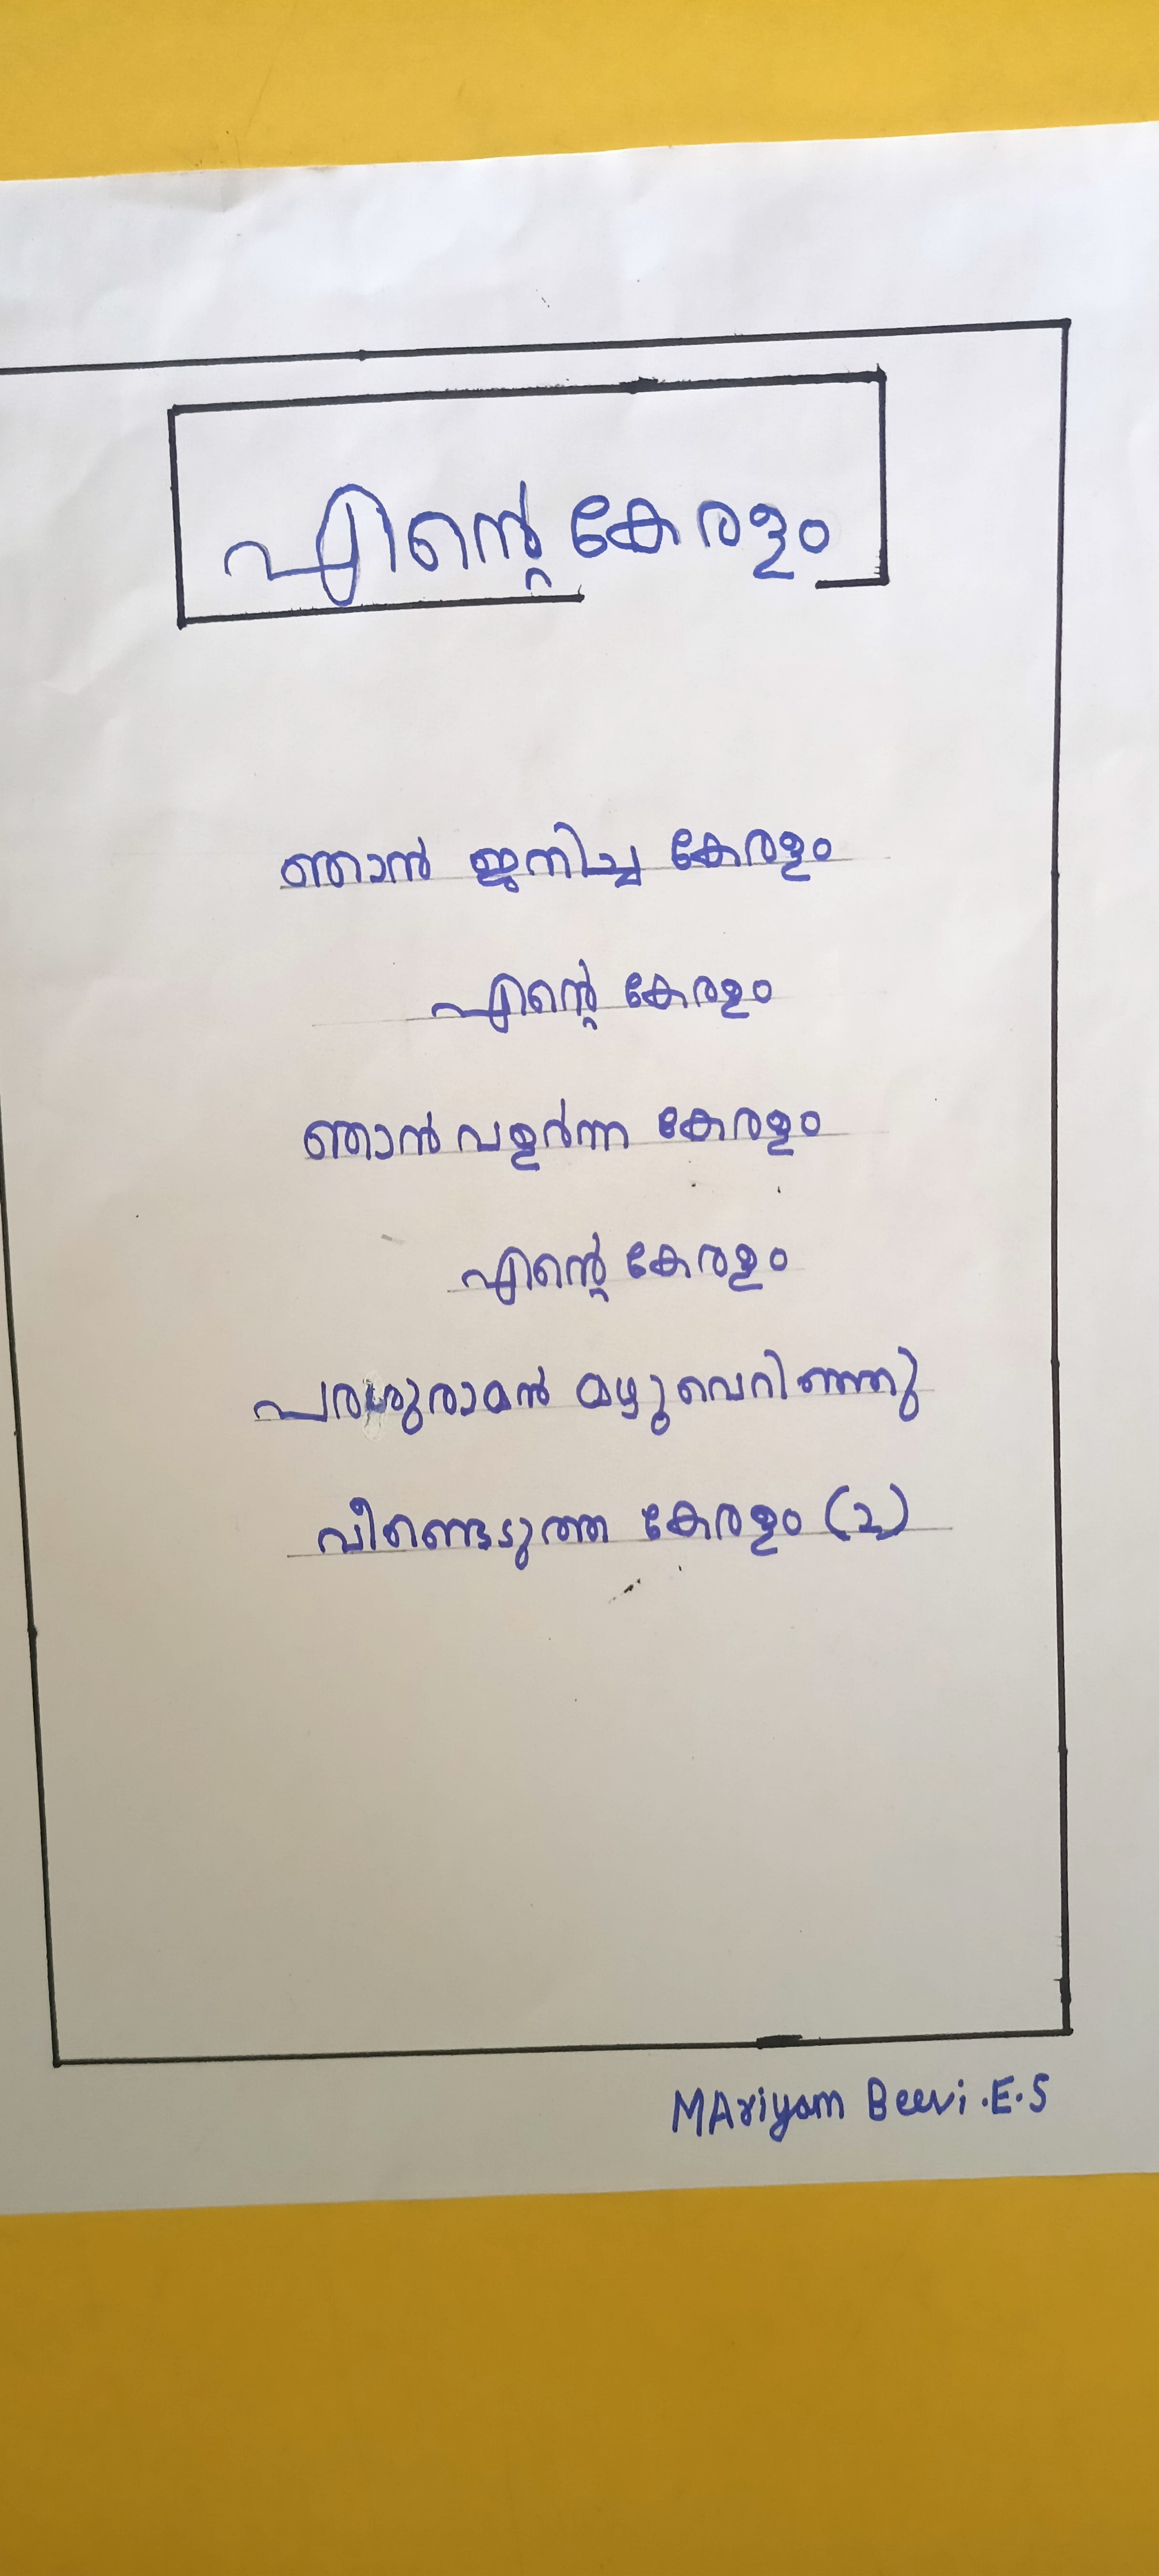 എന്റെ കേരളം
ഞാൻ ജനിച്ച കേരളം
എന്റെ കേരളം
ഞാൻ വളർന്ന കേരളം
എന്റെ കേരളം
പരശുരാമൻ മഴുവെറിഞ്ഞു
വീണ്ടെടുത്ത കേരളം (2)
MAriyam Beevi .E.S